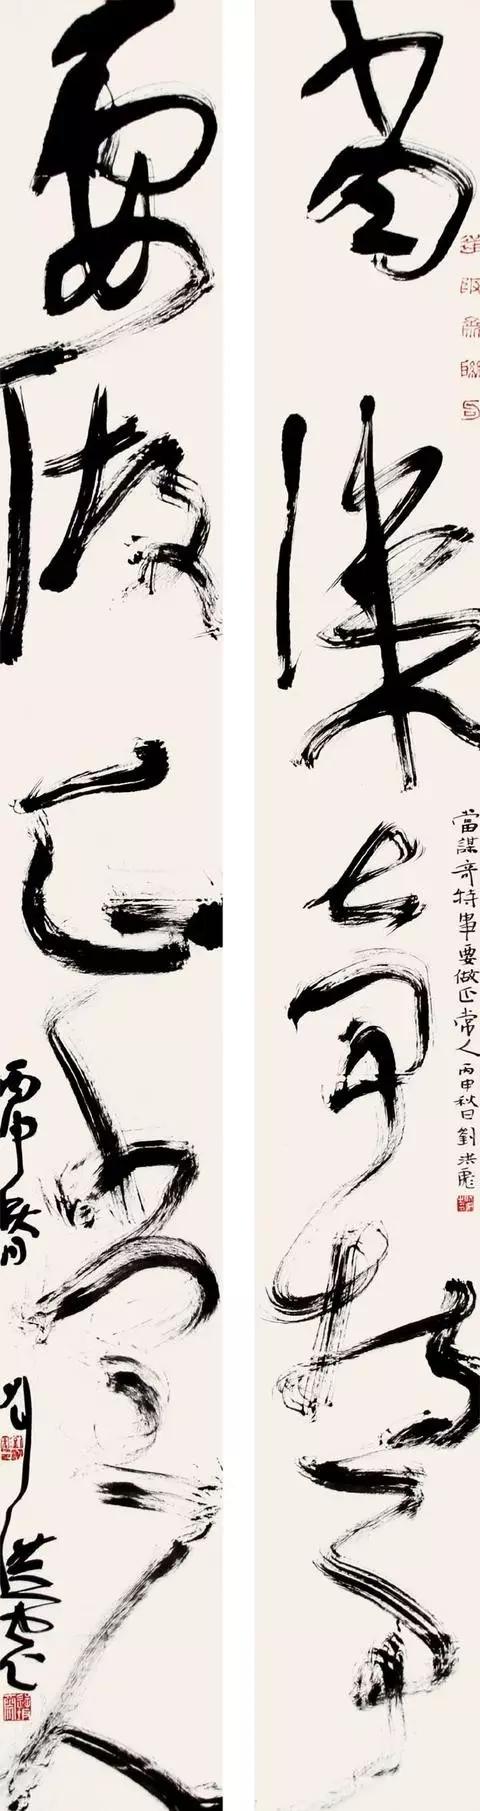 當謀奇特事
當謀奇特事要做正常人丙申秋日劉洪彪
要做正常人
丙申秋月劉洪彪